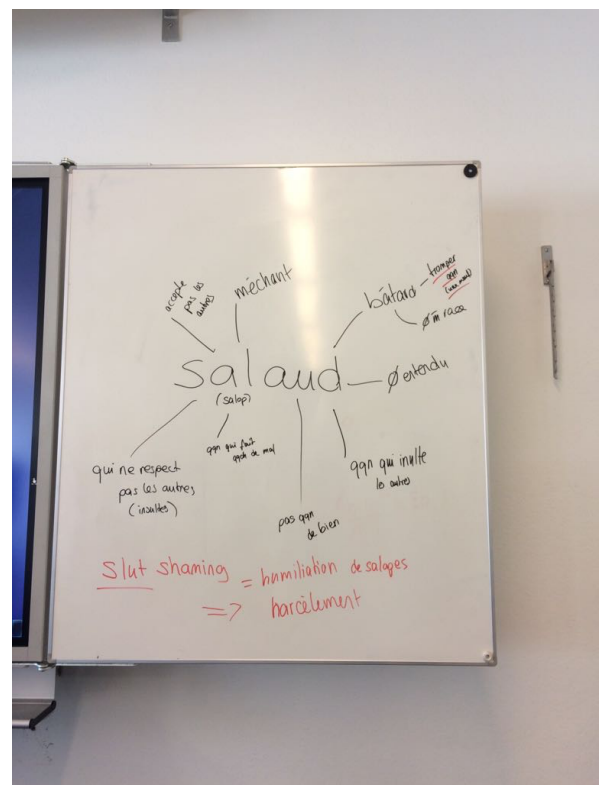 accepte
pas les
autres
méchant
bâtard
tromper
qqn
ø m race
salaud
(salop)
ø entendu
qui ne respect
pas les autres
(insultes)
qqn qui fait
qqch de mal
pas qqn
de bien
qqn qui inulte
les autres
slut shaming = humiliation de salopes
=> harcèlement